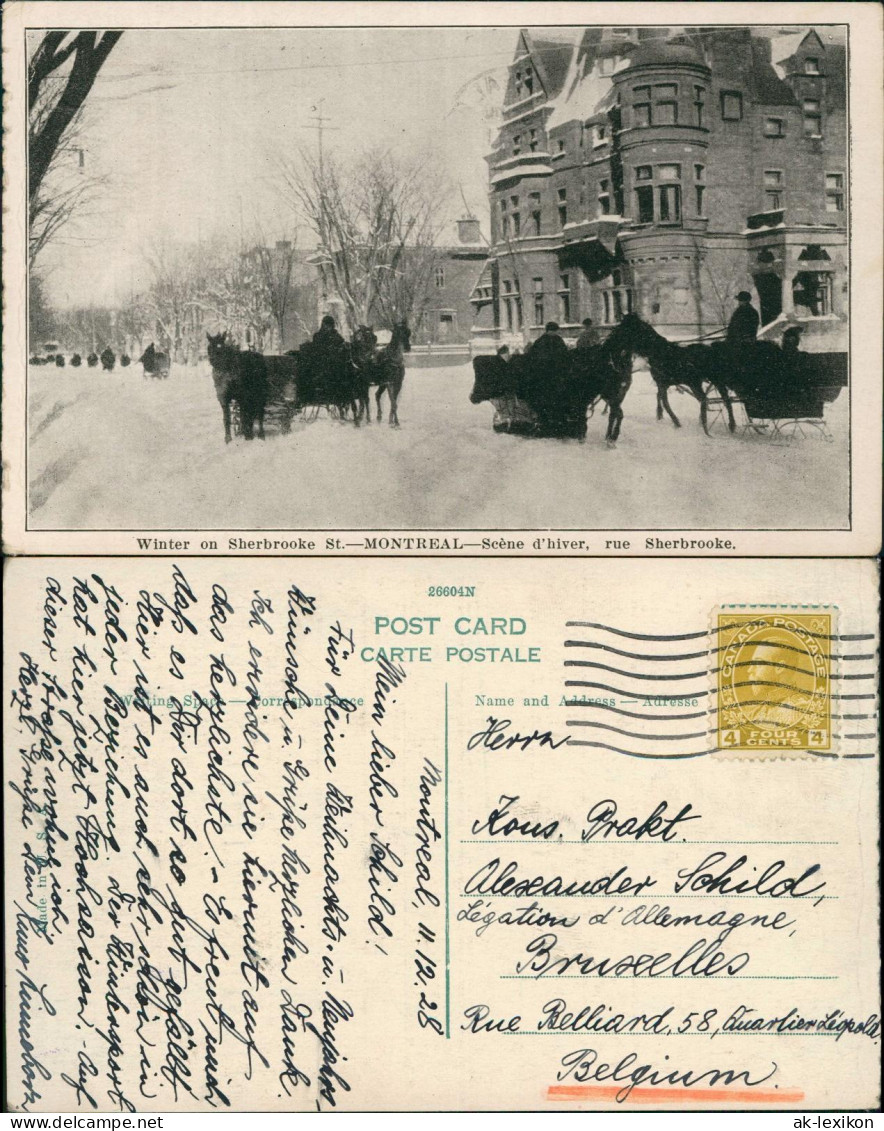 Winter on Sherbrooke St.—MONTREAL—Scène d'hiver, rue Sherbrooke.
26604N
POST CARD
CARTE POSTALE
Writing Space — Correspondence
Name and Address — Adresse
CANADA POSTAGE
4 FOUR CENTS 4
Made in U. S.
Montreal, 11.12.28
Mein lieber Schild!
Für Deine Weihnachts- u. Neujahrs-
Wünsche u. Grüße herzlichen Dank.
Ich erwidere sie hiermit auf
das herzlichste. – Es freut mich
daß es Dir dort so gut gefällt
Hier ist es auch sehr schön in
jeder Beziehung. Der Wintersport
hat hier jetzt Hochsaison. Auf
dieser Straße wohne ich.
Herzl. Grüße Dein
Herrn
Kons. Prakt.
Alexander Schild,
Légation d'Allemagne,
Bruxelles
Rue Belliard, 58, Quartier Léopold.
Belgium.
ak-lexikon